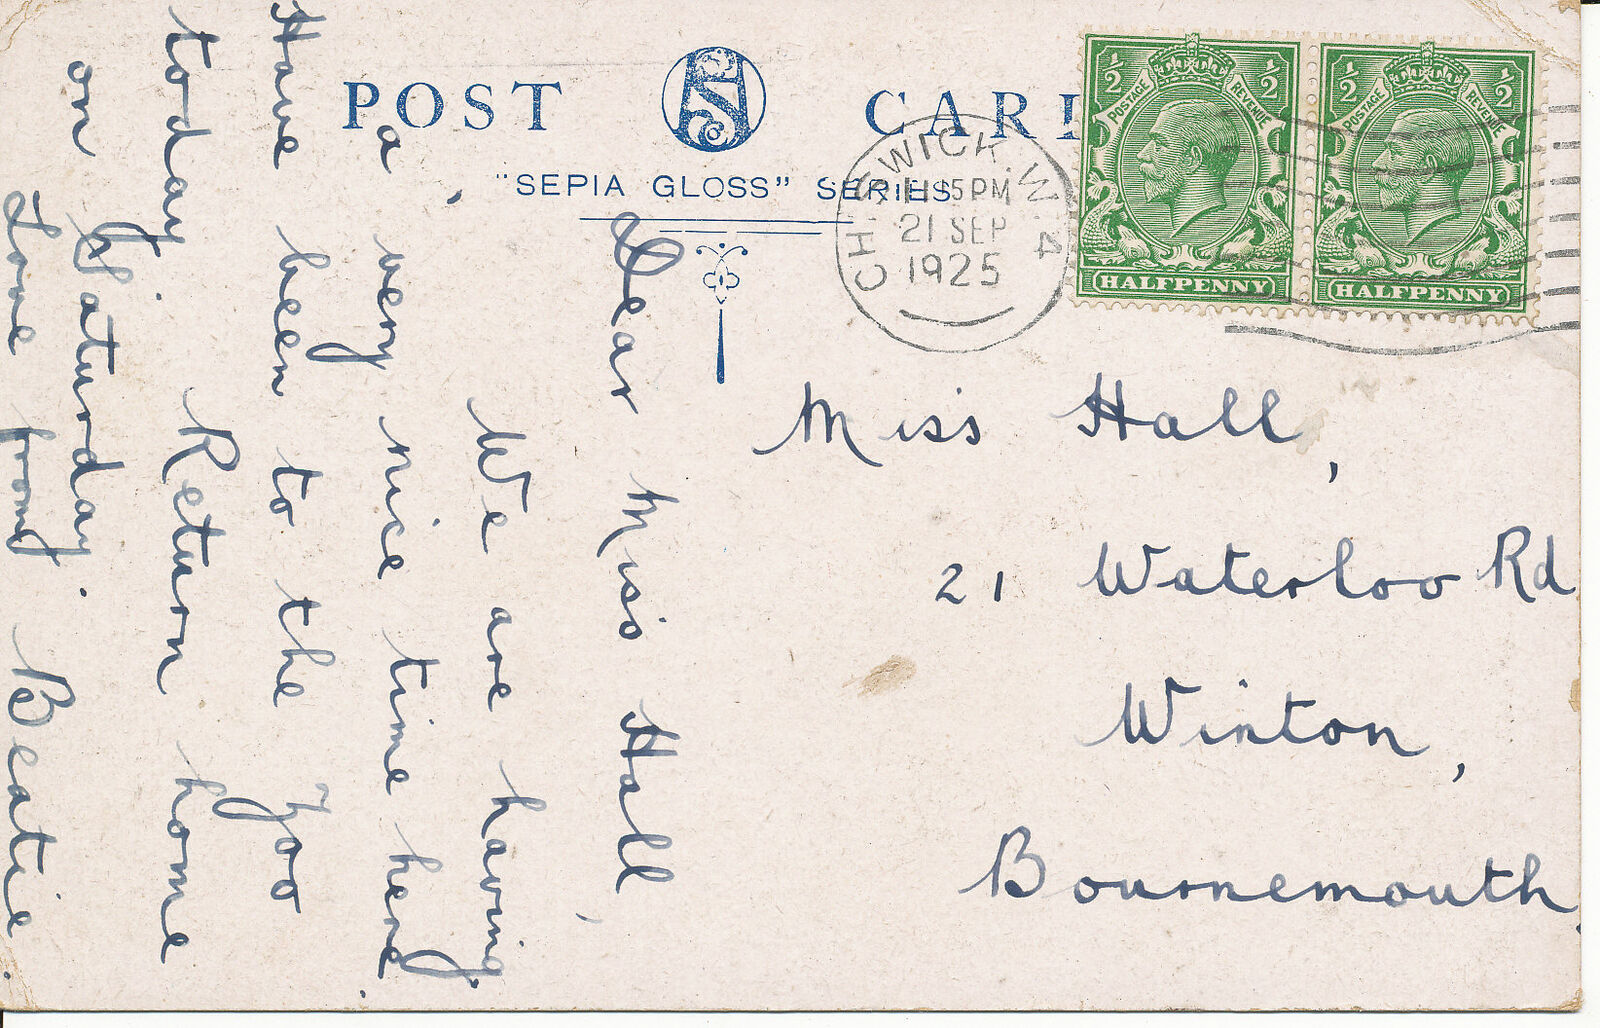 POST CARD
"SEPIA GLOSS" SERIES
CHISWICK W.4
11.15PM
21 SEP
1925
½ ½
POSTAGE REVENUE
HALFPENNY
½ ½
POSTAGE REVENUE
HALFPENNY
Dear Miss Hall,
We are having
a very nice time here.
Have been to the Zoo
today. Return home
on Saturday.
Love from Beatie.
Miss Hall,
21 Waterloo Rd
Winton,
Bournemouth.